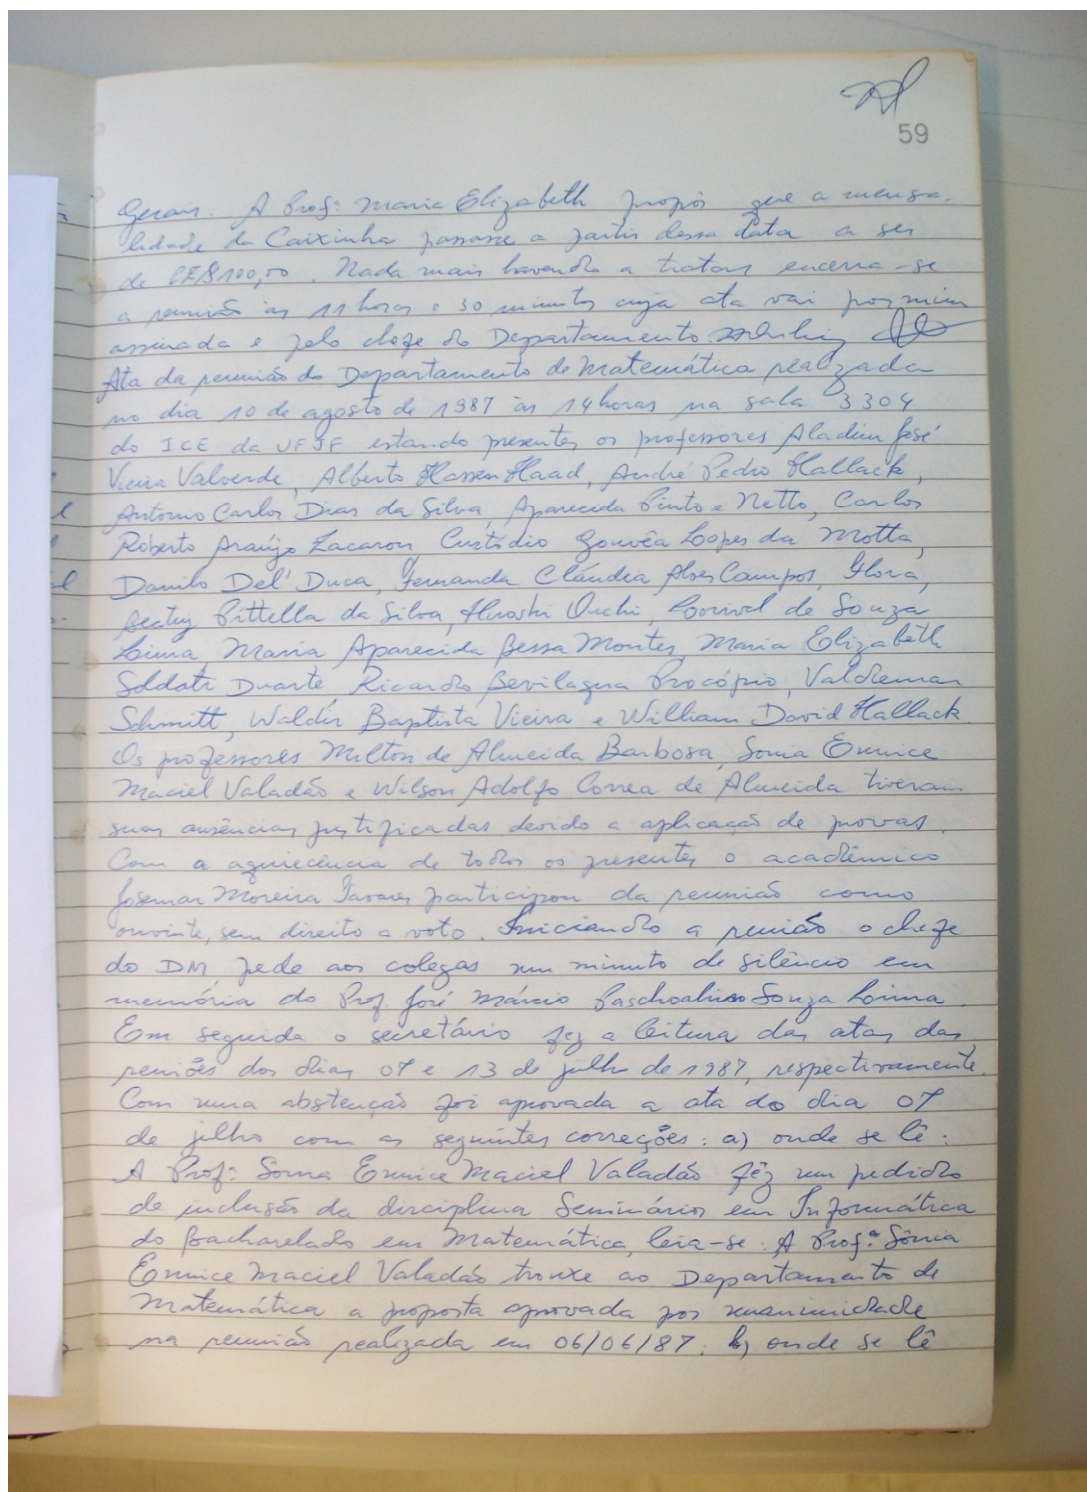 59
Gerais. A Profª Maria Elizabeth propôs que a mensa-
lidade da Caixinha passasse a partir dessa data a ser
de CZ$100,00. Nada mais havendo a tratar encerra-se
a reunião às 11 horas e 30 minutos cuja ata vai por mim
assinada e pelo chefe do Departamento.
Ata da reunião do Departamento de Matemática realizada
no dia 10 de agosto de 1987 às 14 horas na sala 3304
do ICE da UFJF estando presentes os professores Aladim José
Vieira Valverde, Alberto Hassen Haad, André Pedro Hallack,
Antonio Carlos Dias da Silva, Aparecida Pinto e Netto, Carlos
Roberto Araújo Zacaron, Custódio Gouvêa Lopes da Motta,
Danilo Del' Duca, Fernanda Cláudia Alves Campos, Flora,
Beatriz Pittella da Silva, Hiroshi Ouchi, Lorival de Souza
Lima, Maria Aparecida Bessa Montes, Maria Elizabeth
Soldati Duarte, Ricardo Bevilaqua Procópio, Valdemar
Schmitt, Waldir Baptista Vieira e William David Hallack.
Os professores Milton de Almeida Barbosa, Sonia Eunice
Maciel Valadão e Wilson Adolfo Correa de Almeida tiveram
suas ausências justificadas devido a aplicação de provas.
Com a aquiecência de todos os presentes o acadêmico
Josemar Moreira Tavares participou da reunião como
ouvinte, sem direito a voto. Iniciando a reunião o chefe
do DM pede aos colegas um minuto de silêncio em
memória do Prof. José Márcio Paschoalino Souza Lima.
Em seguida o secretário fez a leitura das atas das
reuniões dos dias 07 e 13 de julho de 1987, respectivamente.
Com uma abstenção foi aprovada a ata do dia 07
de julho com as seguintes correções: a) onde se lê:
A Profª Sônia Eunice Maciel Valadão fêz um pedido
de inclusão da disciplina Seminários em Informática
do Bacharelado em Matemática, leia-se: A Profª Sônia
Eunice Maciel Valadão trouxe ao Departamento de
Matemática a proposta aprovada por unanimidade
na reunião realizada em 06/06/87. b) onde se lê